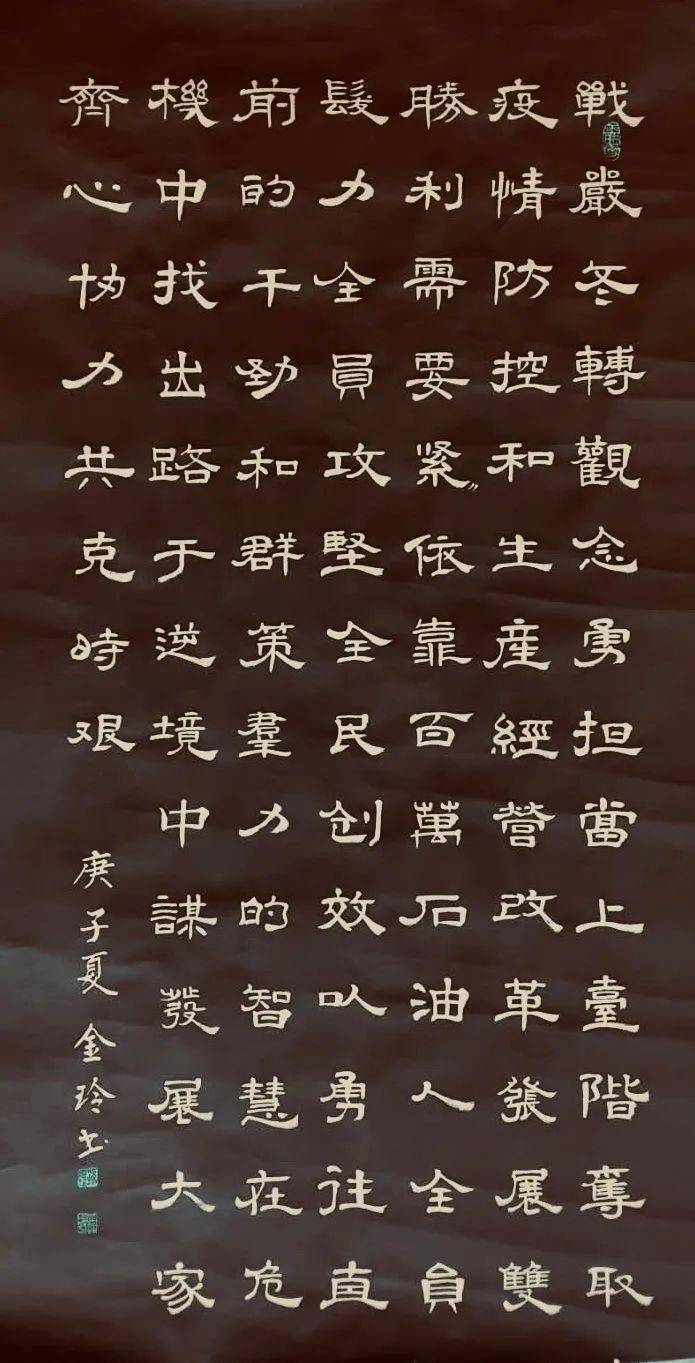 戰嚴冬轉觀念勇担當上臺階奪取
疫情防控和生産經營改革發展雙
勝利需要緊〃依靠百萬石油人全員
髮力全員攻堅全民创效以勇往直
前的干劲和群策羣力的智慧在危
機中找出路于逆境中謀發展大家
齊心协力共克時艰
庚子夏金玲书